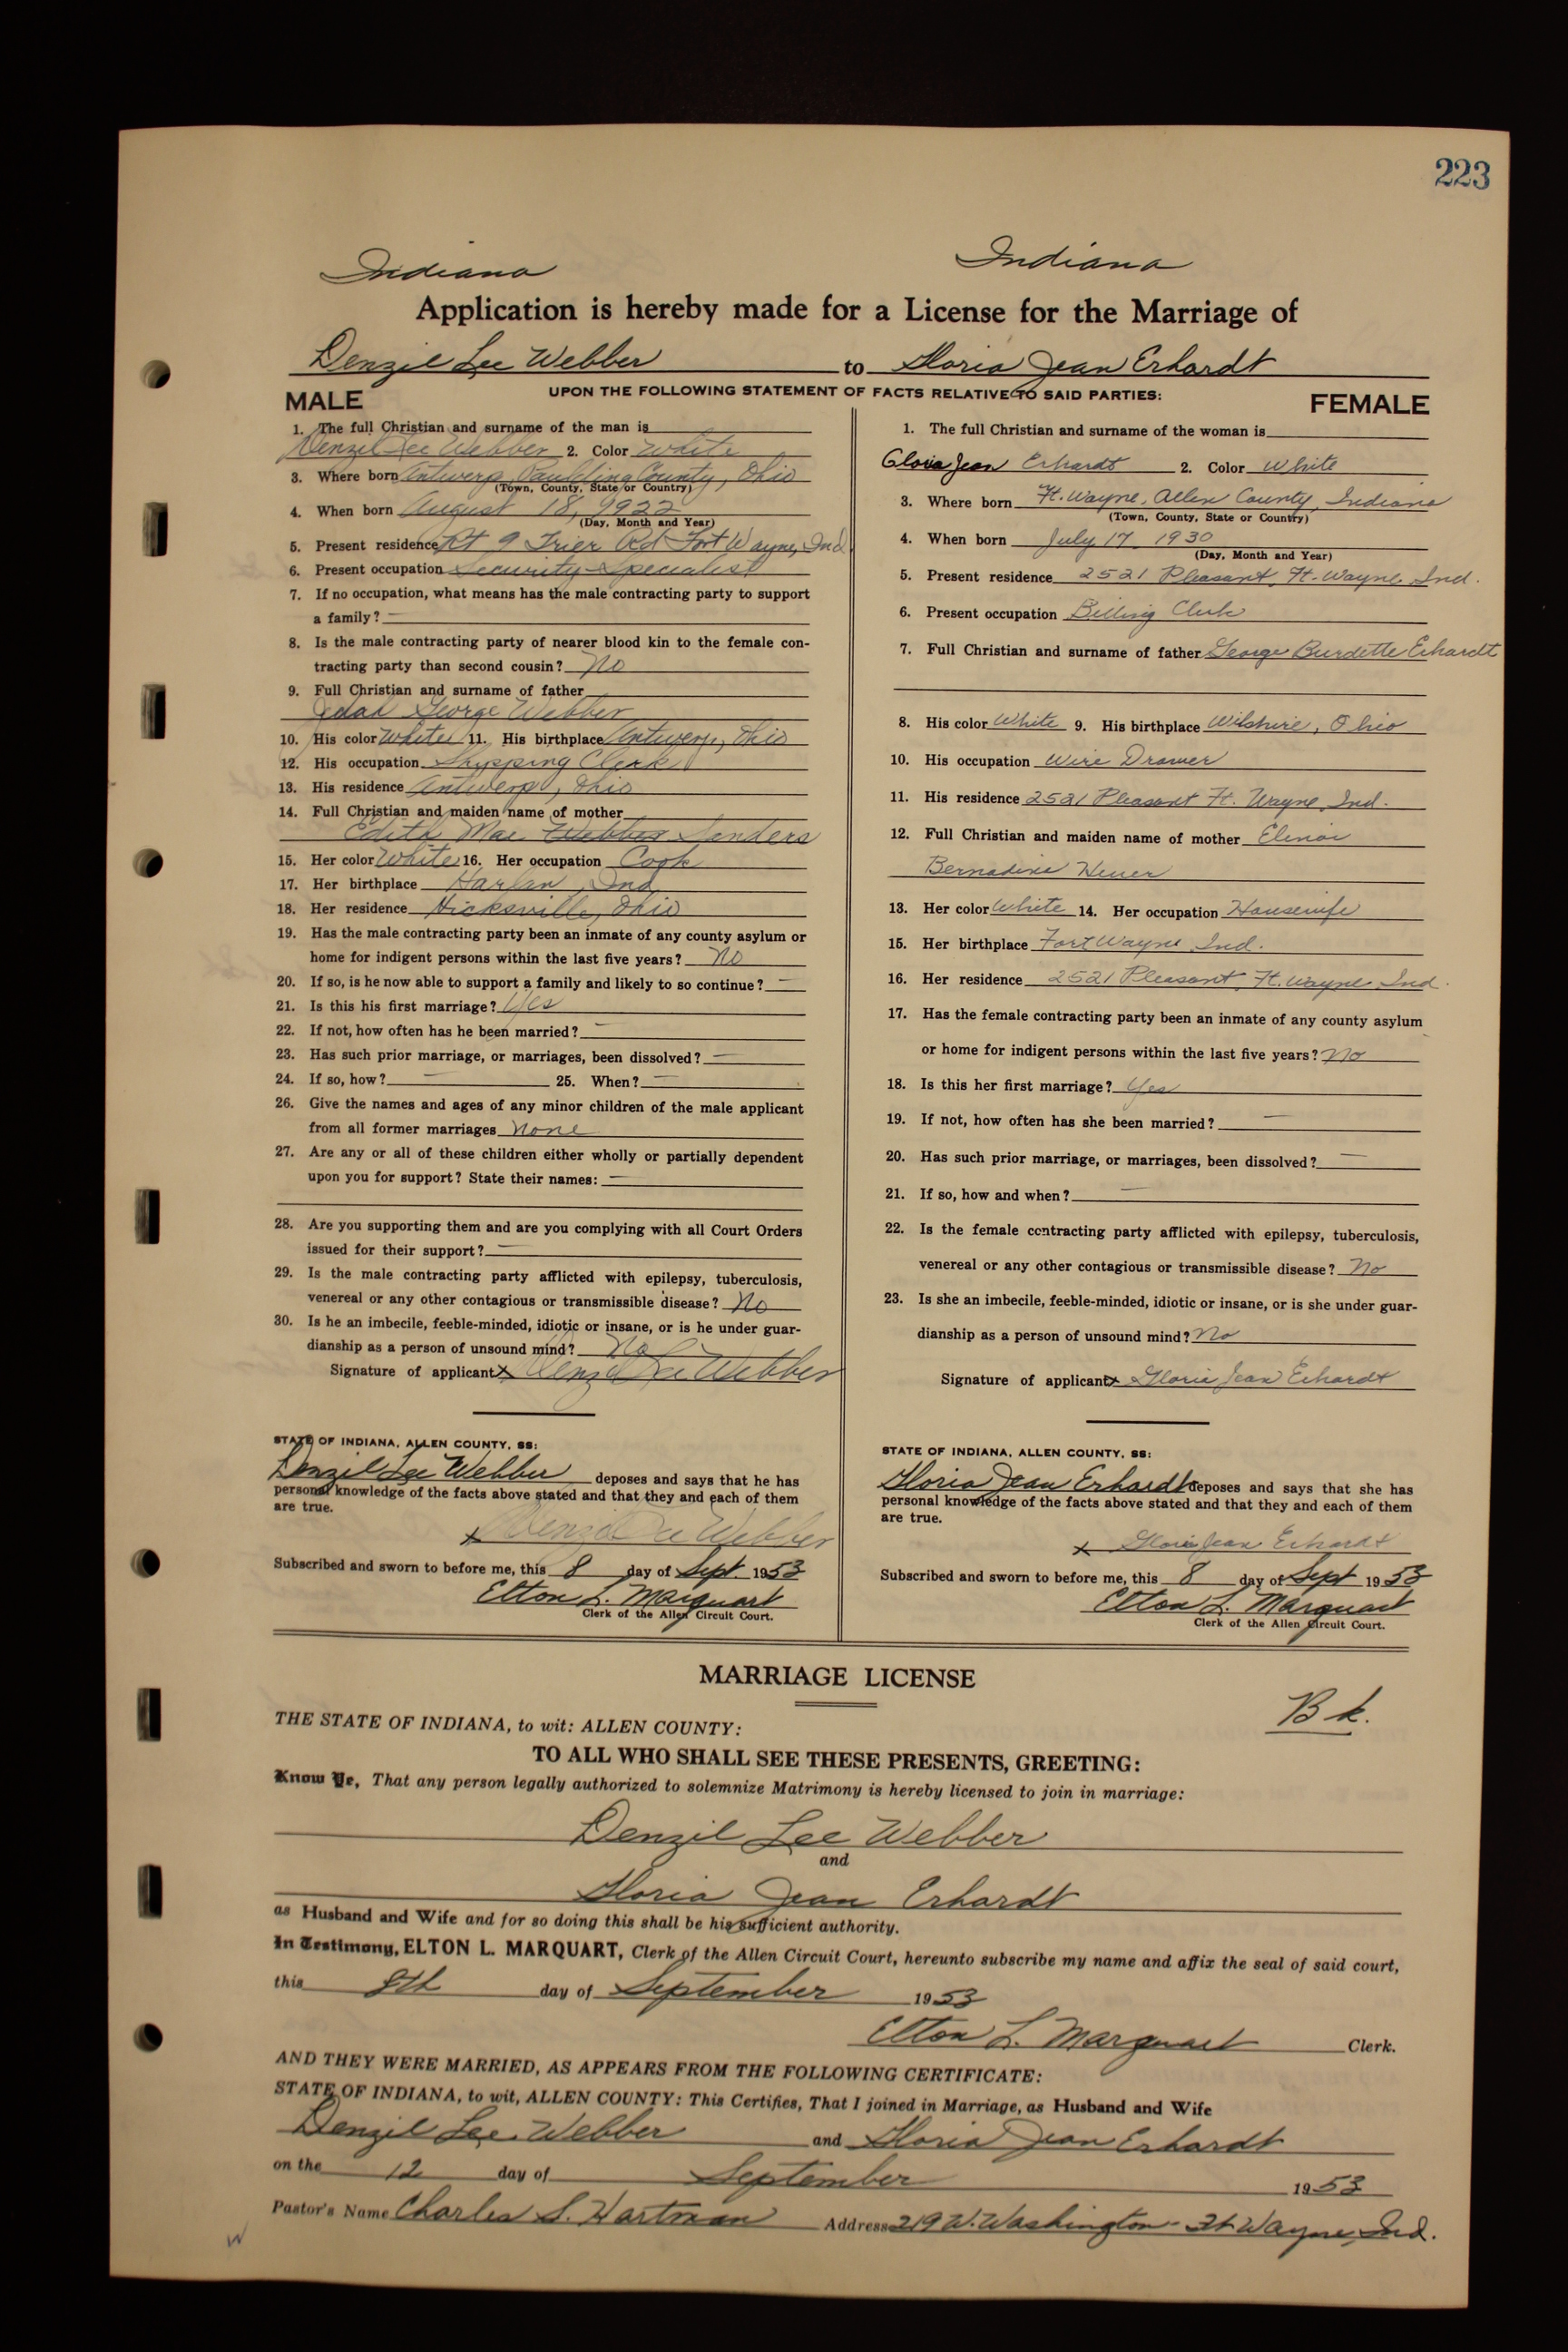 223
Indiana
Indiana
Application is hereby made for a License for the Marriage of
Denzil Lee Webber to Gloria Jean Erhardt
UPON THE FOLLOWING STATEMENT OF FACTS RELATIVE TO SAID PARTIES:
MALE
1. The full Christian and surname of the man is
Denzil Lee Webber 2. Color White
3. Where born Antwerp, Paulding County, Ohio
(Town, County, State or Country)
4. When born August 18, 1922
(Day, Month and Year)
5. Present residence Rt 9 Trier Rd Fort Wayne, Ind
6. Present occupation Security Specialist
7. If no occupation, what means has the male contracting party to support
a family? —
8. Is the male contracting party of nearer blood kin to the female con-
tracting party than second cousin? No
9. Full Christian and surname of father
George Webber
10. His color White 11. His birthplace Antwerp, Ohio
12. His occupation Shipping Clerk
13. His residence Antwerp, Ohio
14. Full Christian and maiden name of mother
Edith Mae Webber Sanders
15. Her color White 16. Her occupation Cook
17. Her birthplace Harlan, Ind
18. Her residence Hicksville, Ohio
19. Has the male contracting party been an inmate of any county asylum or
home for indigent persons within the last five years? No
20. If so, is he now able to support a family and likely to so continue? —
21. Is this his first marriage? Yes
22. If not, how often has he been married? —
23. Has such prior marriage, or marriages, been dissolved? —
24. If so, how? — 25. When? —
26. Give the names and ages of any minor children of the male applicant
from all former marriages None
27. Are any or all of these children either wholly or partially dependent
upon you for support? State their names: —
28. Are you supporting them and are you complying with all Court Orders
issued for their support? —
29. Is the male contracting party afflicted with epilepsy, tuberculosis,
venereal or any other contagious or transmissible disease? No
30. Is he an imbecile, feeble-minded, idiotic or insane, or is he under guar-
dianship as a person of unsound mind? No
Signature of applicant x Denzil Lee Webber
STATE OF INDIANA, ALLEN COUNTY, SS:
Denzil Lee Webber deposes and says that he has
personal knowledge of the facts above stated and that they and each of them
are true.
x Denzil Lee Webber
Subscribed and sworn to before me, this 8 day of Sept. 1953
Elton L. Marquart
Clerk of the Allen Circuit Court.
FEMALE
1. The full Christian and surname of the woman is
Gloria Jean Erhardt 2. Color White
3. Where born Ft. Wayne, Allen County, Indiana
(Town, County, State or Country)
4. When born July 17 1930
(Day, Month and Year)
5. Present residence 2521 Pleasant, Ft. Wayne, Ind.
6. Present occupation Billing Clerk
7. Full Christian and surname of father George Burdette Erhardt
8. His color White 9. His birthplace Wilshire, Ohio
10. His occupation Wire Drawer
11. His residence 2521 Pleasant Ft. Wayne, Ind.
12. Full Christian and maiden name of mother Elinor
Bernadine Heuer
13. Her color White 14. Her occupation Housewife
15. Her birthplace Fort Wayne, Ind.
16. Her residence 2521 Pleasant, Ft. Wayne, Ind.
17. Has the female contracting party been an inmate of any county asylum
or home for indigent persons within the last five years? No
18. Is this her first marriage? Yes
19. If not, how often has she been married? —
20. Has such prior marriage, or marriages, been dissolved? —
21. If so, how and when? —
22. Is the female contracting party afflicted with epilepsy, tuberculosis,
venereal or any other contagious or transmissible disease? No
23. Is she an imbecile, feeble-minded, idiotic or insane, or is she under guar-
dianship as a person of unsound mind? No
Signature of applicant x Gloria Jean Erhardt
STATE OF INDIANA, ALLEN COUNTY, SS:
Gloria Jean Erhardt deposes and says that she has
personal knowledge of the facts above stated and that they and each of them
are true.
x Gloria Jean Erhardt
Subscribed and sworn to before me, this 8 day of Sept 1953
Elton L. Marquart
Clerk of the Allen Circuit Court.
MARRIAGE LICENSE
Bk.
THE STATE OF INDIANA, to wit: ALLEN COUNTY:
TO ALL WHO SHALL SEE THESE PRESENTS, GREETING:
Know Ye, That any person legally authorized to solemnize Matrimony is hereby licensed to join in marriage:
Denzil Lee Webber
and
Gloria Jean Erhardt
as Husband and Wife and for so doing this shall be his sufficient authority.
In Testimony, ELTON L. MARQUART, Clerk of the Allen Circuit Court, hereunto subscribe my name and affix the seal of said court,
this 8th day of September 1953
Elton L. Marquart Clerk.
AND THEY WERE MARRIED, AS APPEARS FROM THE FOLLOWING CERTIFICATE:
STATE OF INDIANA, to wit, ALLEN COUNTY: This Certifies, That I joined in Marriage, as Husband and Wife
Denzil Lee Webber and Gloria Jean Erhardt
on the 12 day of September 1953
Pastor's Name Charles S. Hartman Address 219 W. Washington - Ft Wayne, Ind.
W